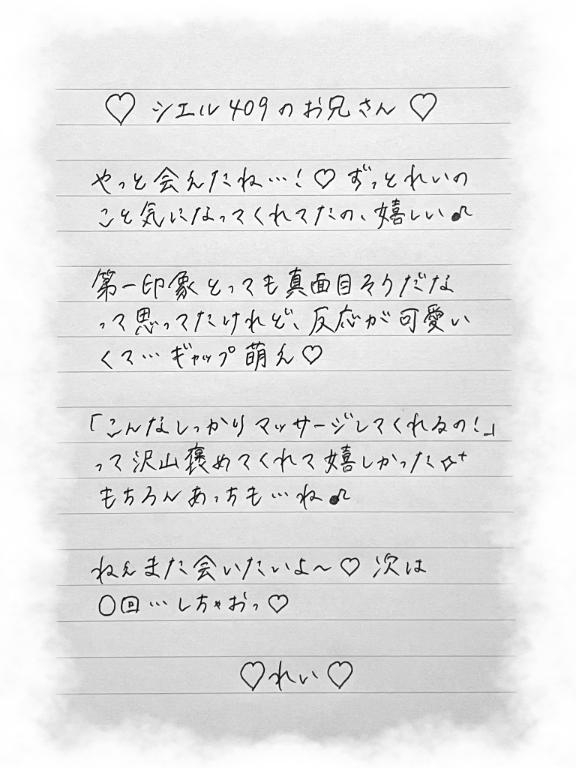 ♡ シエル409のお兄さん ♡
やっと会えたね…!♡ ずっとれいの
こと気になってくれてたの、嬉しい♪
第一印象とっても真面目そうだな
って思ってたけれど、反応が可愛い
くて…ギャップ萌え♡
「こんなしっかりマッサージしてくれるの!」
って沢山褒めてくれて嬉しかった✧⁺
もちろんあっちも…ね♪
ねぇまた会いたいよ〜♡ 次は
〇回…しちゃおっ♡
♡れい♡